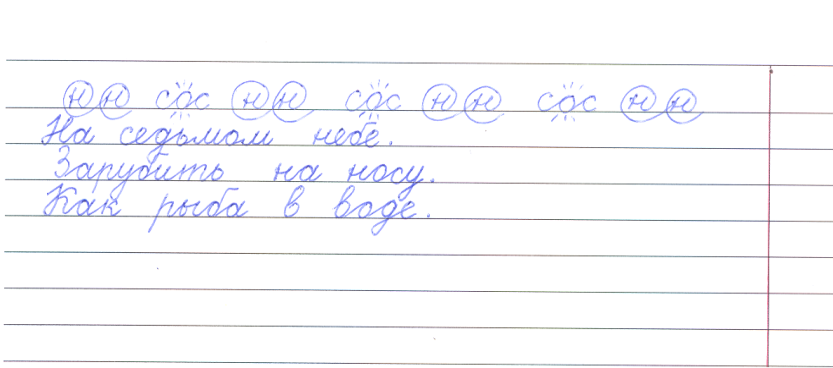 н н сос н н сос н н сос н н
На седьмом небе.
Зарубить на носу.
Как рыба в воде.